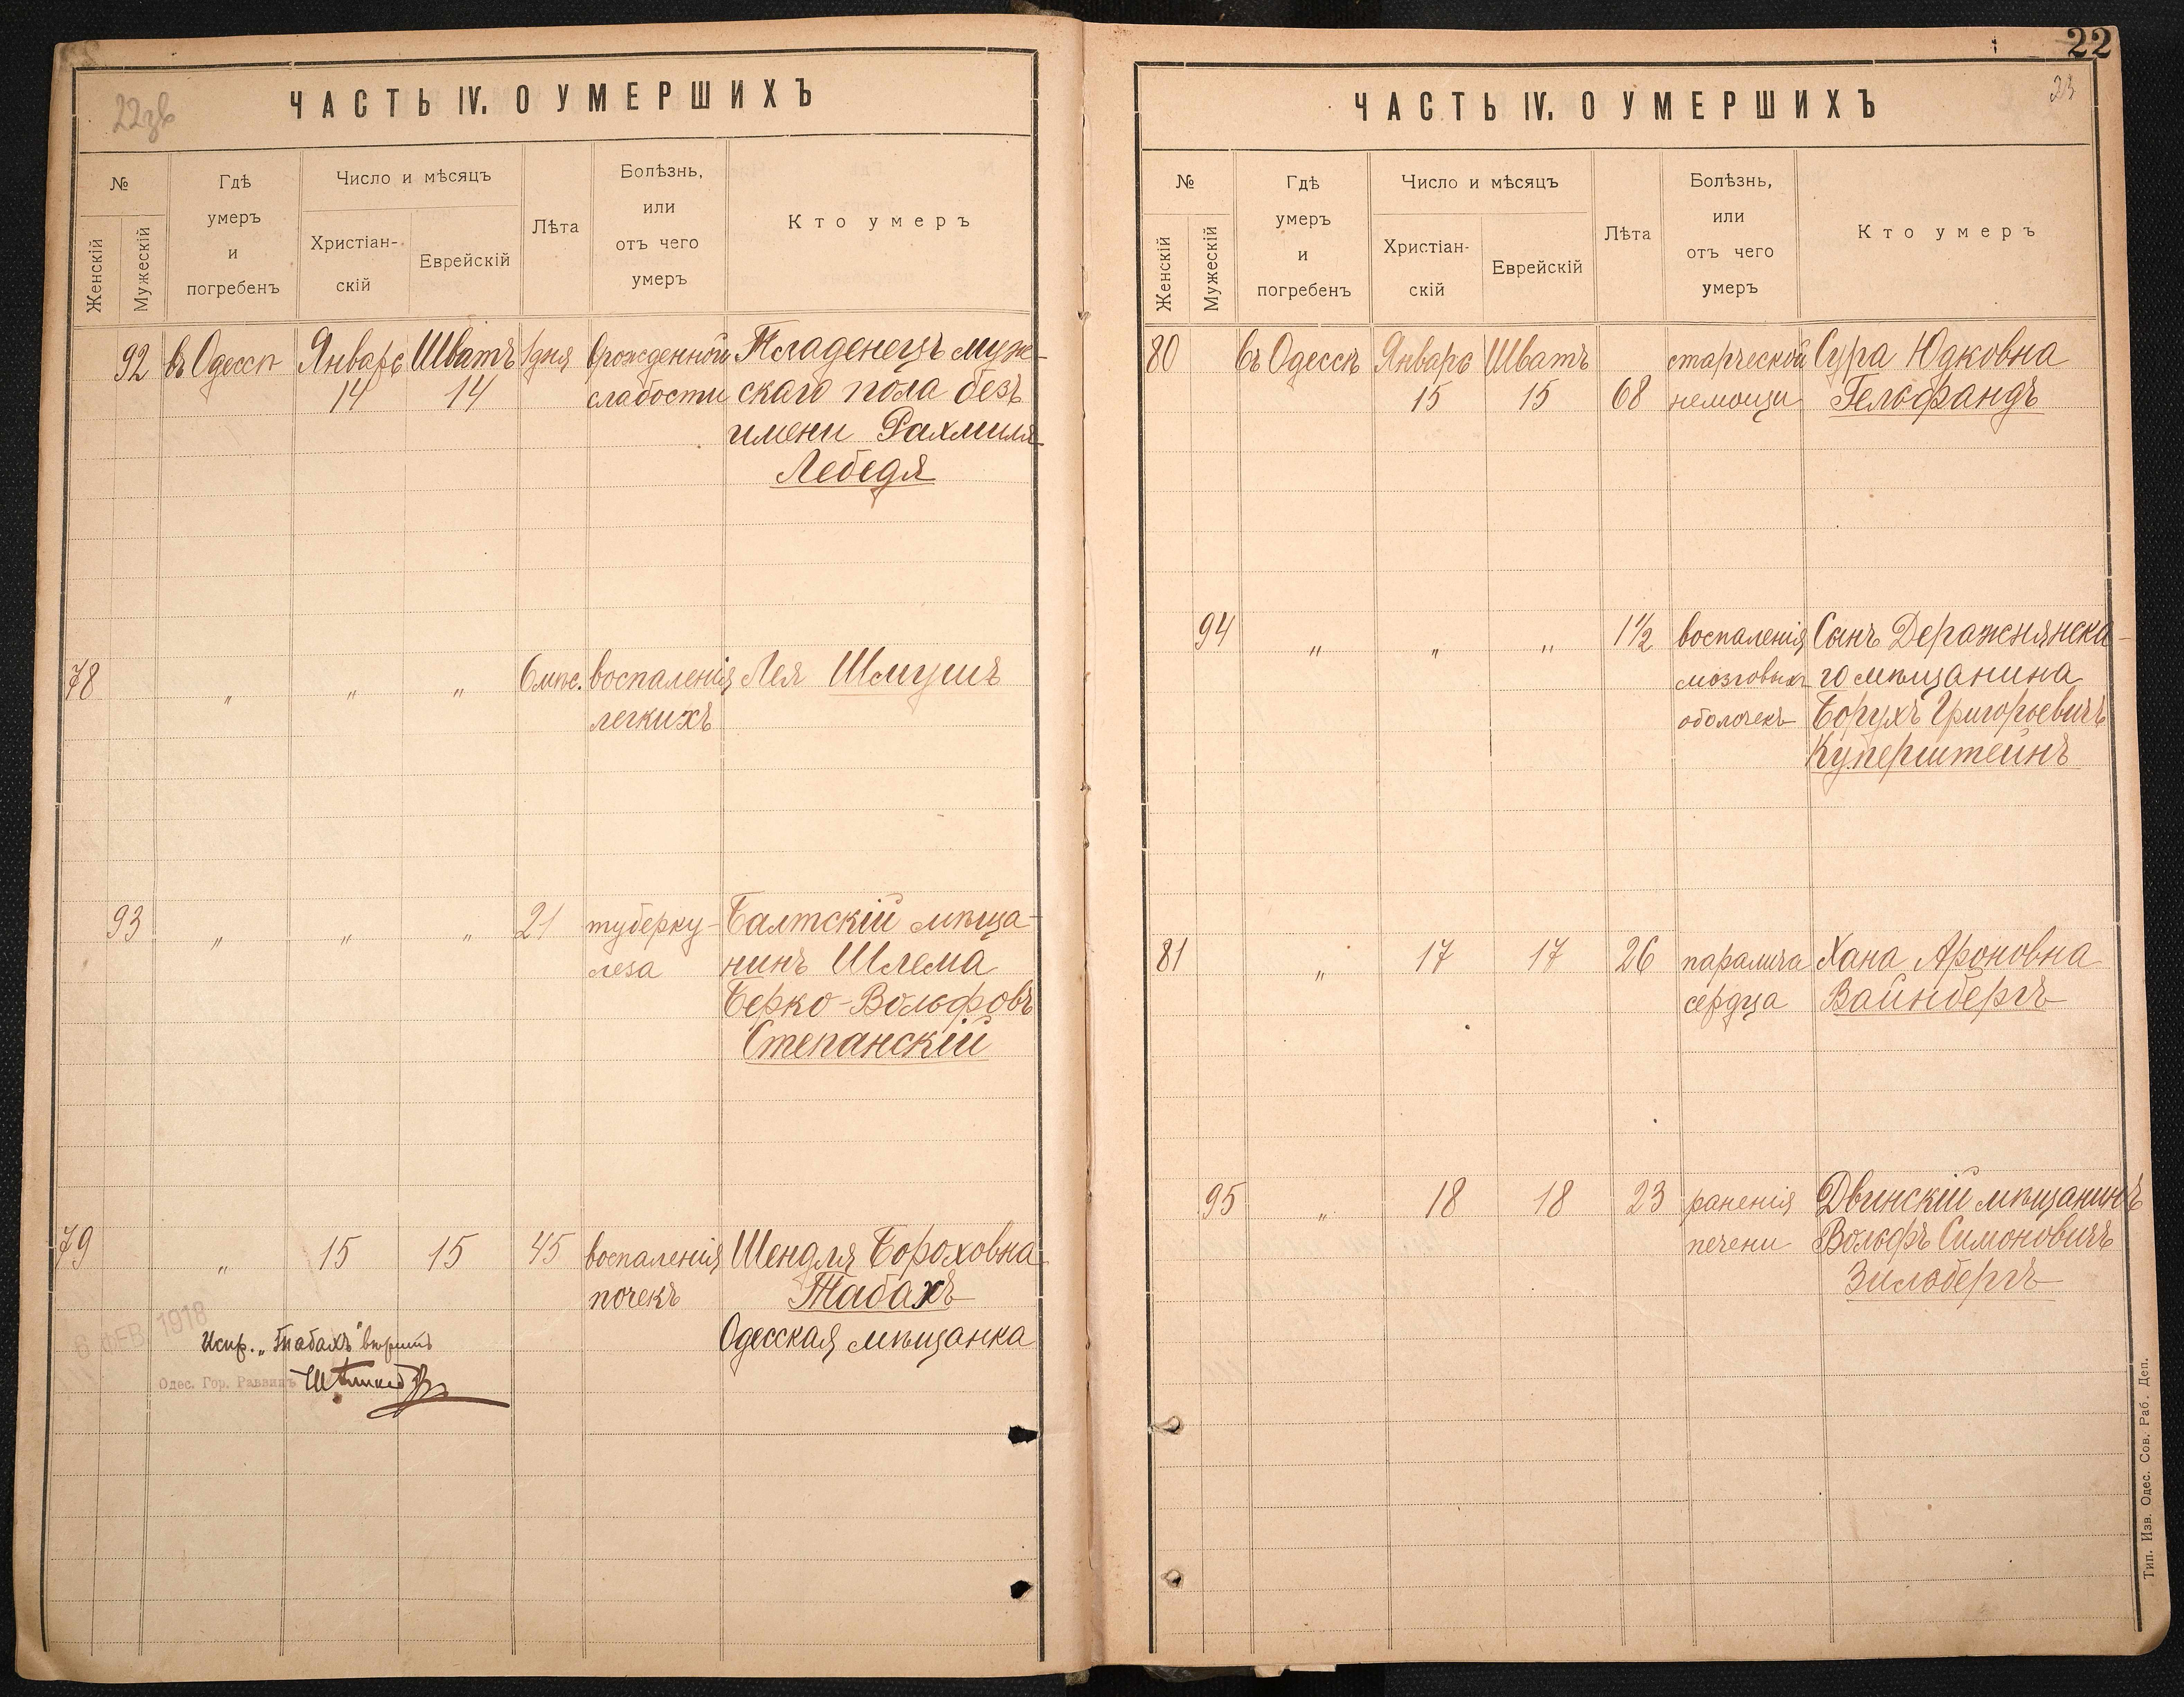 22зв
ЧАСТЬ IV. О УМЕРШИХЪ
№
Женскій
Мужескій
Гдѣ
умеръ
и
погребенъ
Число и мѣсяцъ
Христіан-
скій
Еврейскій
Лѣта
Болѣзнь,
или
отъ чего
умеръ
Кто умеръ
92 въ Одессѣ Январь Шватъ 1 дня врожденной Младенецъ муж-
14 14 слабости скаго пола безъ
имени Рахмиля
Лебедя
78 „ „ „ 6 мѣс. воспаленія Лея Шмушъ
легкихъ
93 „ „ „ 21 туберку- Балтскій мѣща-
леза нинъ Шлема
Берко-Вольфовъ
Степанскій
79 „ 15 15 45 воспаленія Шендля Бороховна
почекъ Табахъ
Одесская мѣщанка
6 ФЕВ 1918
Испр. „Табахъ" вѣрить
Одес. Гор. Раввинъ
22
23
ЧАСТЬ IV. О УМЕРШИХЪ
№
Женскій
Мужескій
Гдѣ
умеръ
и
погребенъ
Число и мѣсяцъ
Христіан-
скій
Еврейскій
Лѣта
Болѣзнь,
или
отъ чего
умеръ
Кто умеръ
80 въ Одессѣ Январь Шватъ старческой Сура Юдковна
15 15 68 немощи Гельфандъ
94 „ „ „ 1½ воспаленія Сынъ Деражнянска-
мозговыхъ го мѣщанина
оболочекъ Борухъ Григорьевичъ
Куперштейнъ
81 „ 17 17 26 паралича Хана Ароновна
сердца Вайнбергъ
95 „ 18 18 23 раненія Двинскій мѣщанинъ
печени Вольфъ Симоновичъ
Зильбергъ
Тип. Изв. Одес. Сов. Раб. Деп.